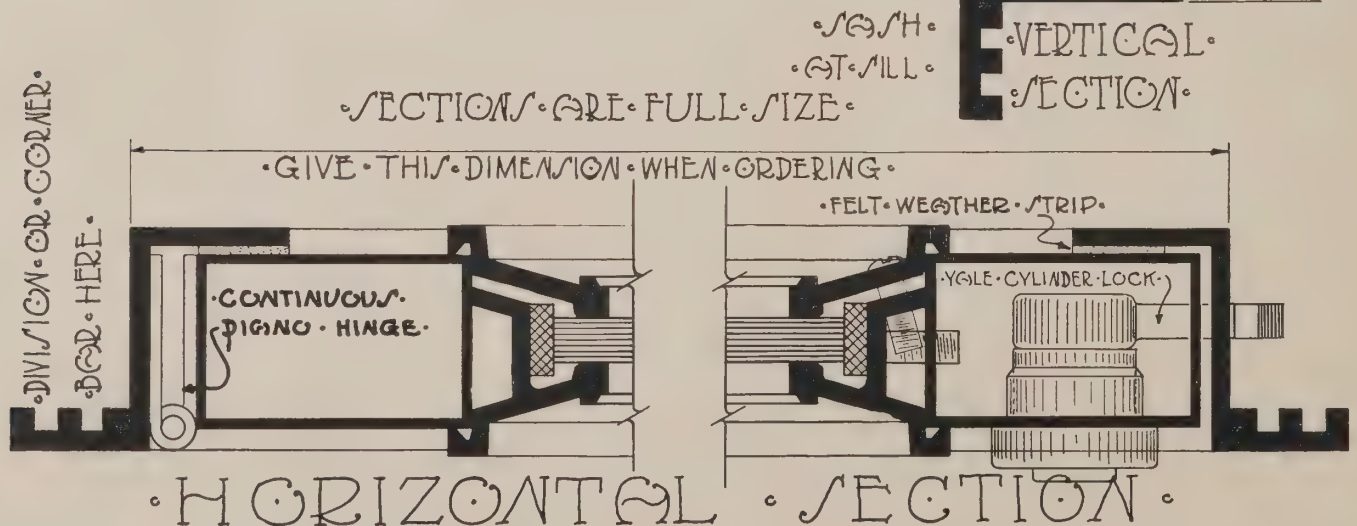 ·SASH·
·AT·SILL·
·VERTICAL·
·SECTION·
·SECTIONS·ARE·FULL·SIZE·
·GIVE·THIS·DIMENSION·WHEN·ORDERING·
·FELT·WEATHER·STRIP·
·YALE·CYLINDER·LOCK·
·DIVISION·OR·CORNER·
·BAR·HERE·
·CONTINUOUS·
PIANO·HINGE·
·HORIZONTAL·SECTION·